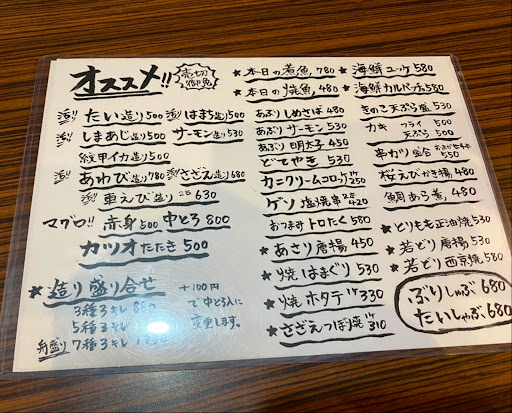 オススメ!!
売切御免
活!! たい造り500
活!! はまち造り500
活!! しまあじ造り500
サーモン造り530
紋甲イカ造り500
活!! あわび造り780
活!! さざえ造り680
活!! 車えび造り2匹630
マグロ!! 赤身500 中とろ800
カツオたたき500
★造り盛り合せ
3種3キレ
5種3キレ
舟盛り 7種3キレ
+100円
で中とろに
変更します。
★本日の煮魚780
★本日の焼魚480
あぶりしめさば480
あぶりサーモン530
あぶり明太子450
どて焼き530
カニクリームコロッケ1ヶ250
ゲソ塩焼串2本420
おつまみトロたく580
★あさり唐揚450
★焼はまぐり530
★焼ホタテ1ヶ330
★さざえつぼ焼1ヶ310
★海鮮ユッケ580
★海鮮カルパッチョ580
きのこ天ぷら盛530
カキ フライ500
天ぷら500
串カツ盛合 550
桜えびかき揚480
鯛あら煮480
★とりもも正油焼530
★若どり唐揚530
★若どり西京焼580
ぶりしゃぶ680
たいしゃぶ680